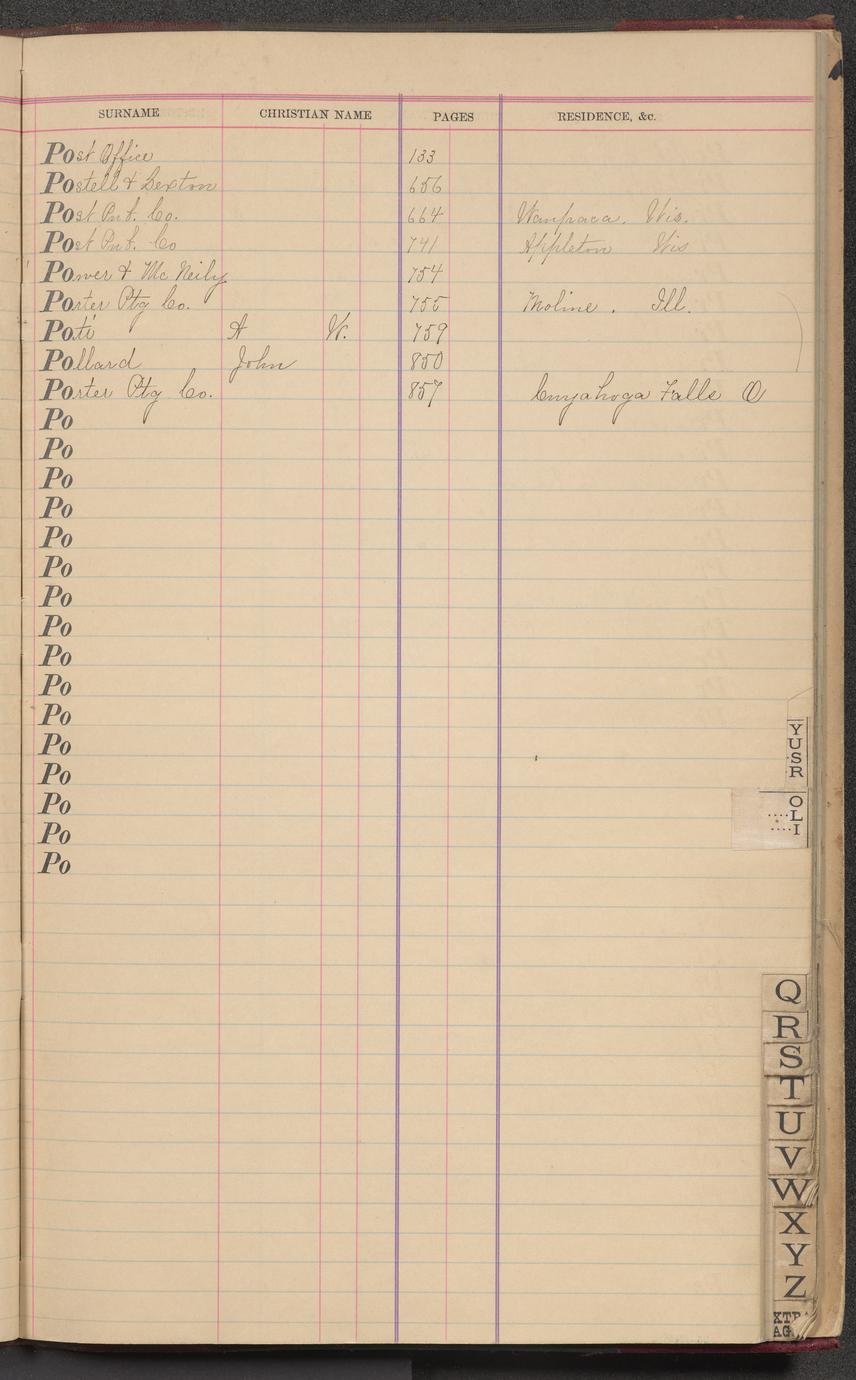 SURNAME CHRISTIAN NAME PAGES RESIDENCE, &c.
Post Office 133
Postell & Sexton 656
Post Pub. Co. 664 Waupaca. Wis.
Post Pub. Co 741 Appleton Wis
Power & Mc Neily 754
Porter Ptg Co. 755 Moline. Ill.
A W. 759
Pollard John 850
Porter Ptg Co. 857 Cuyahoga Falls O
Po
Po
Po
Po
Po
Po
Po
Po
Po
Po
Po
Po
Po
Po
Po
Po
Y
U
S
R
O
L
I
Q
R
S
T
U
V
W
X
Y
Z